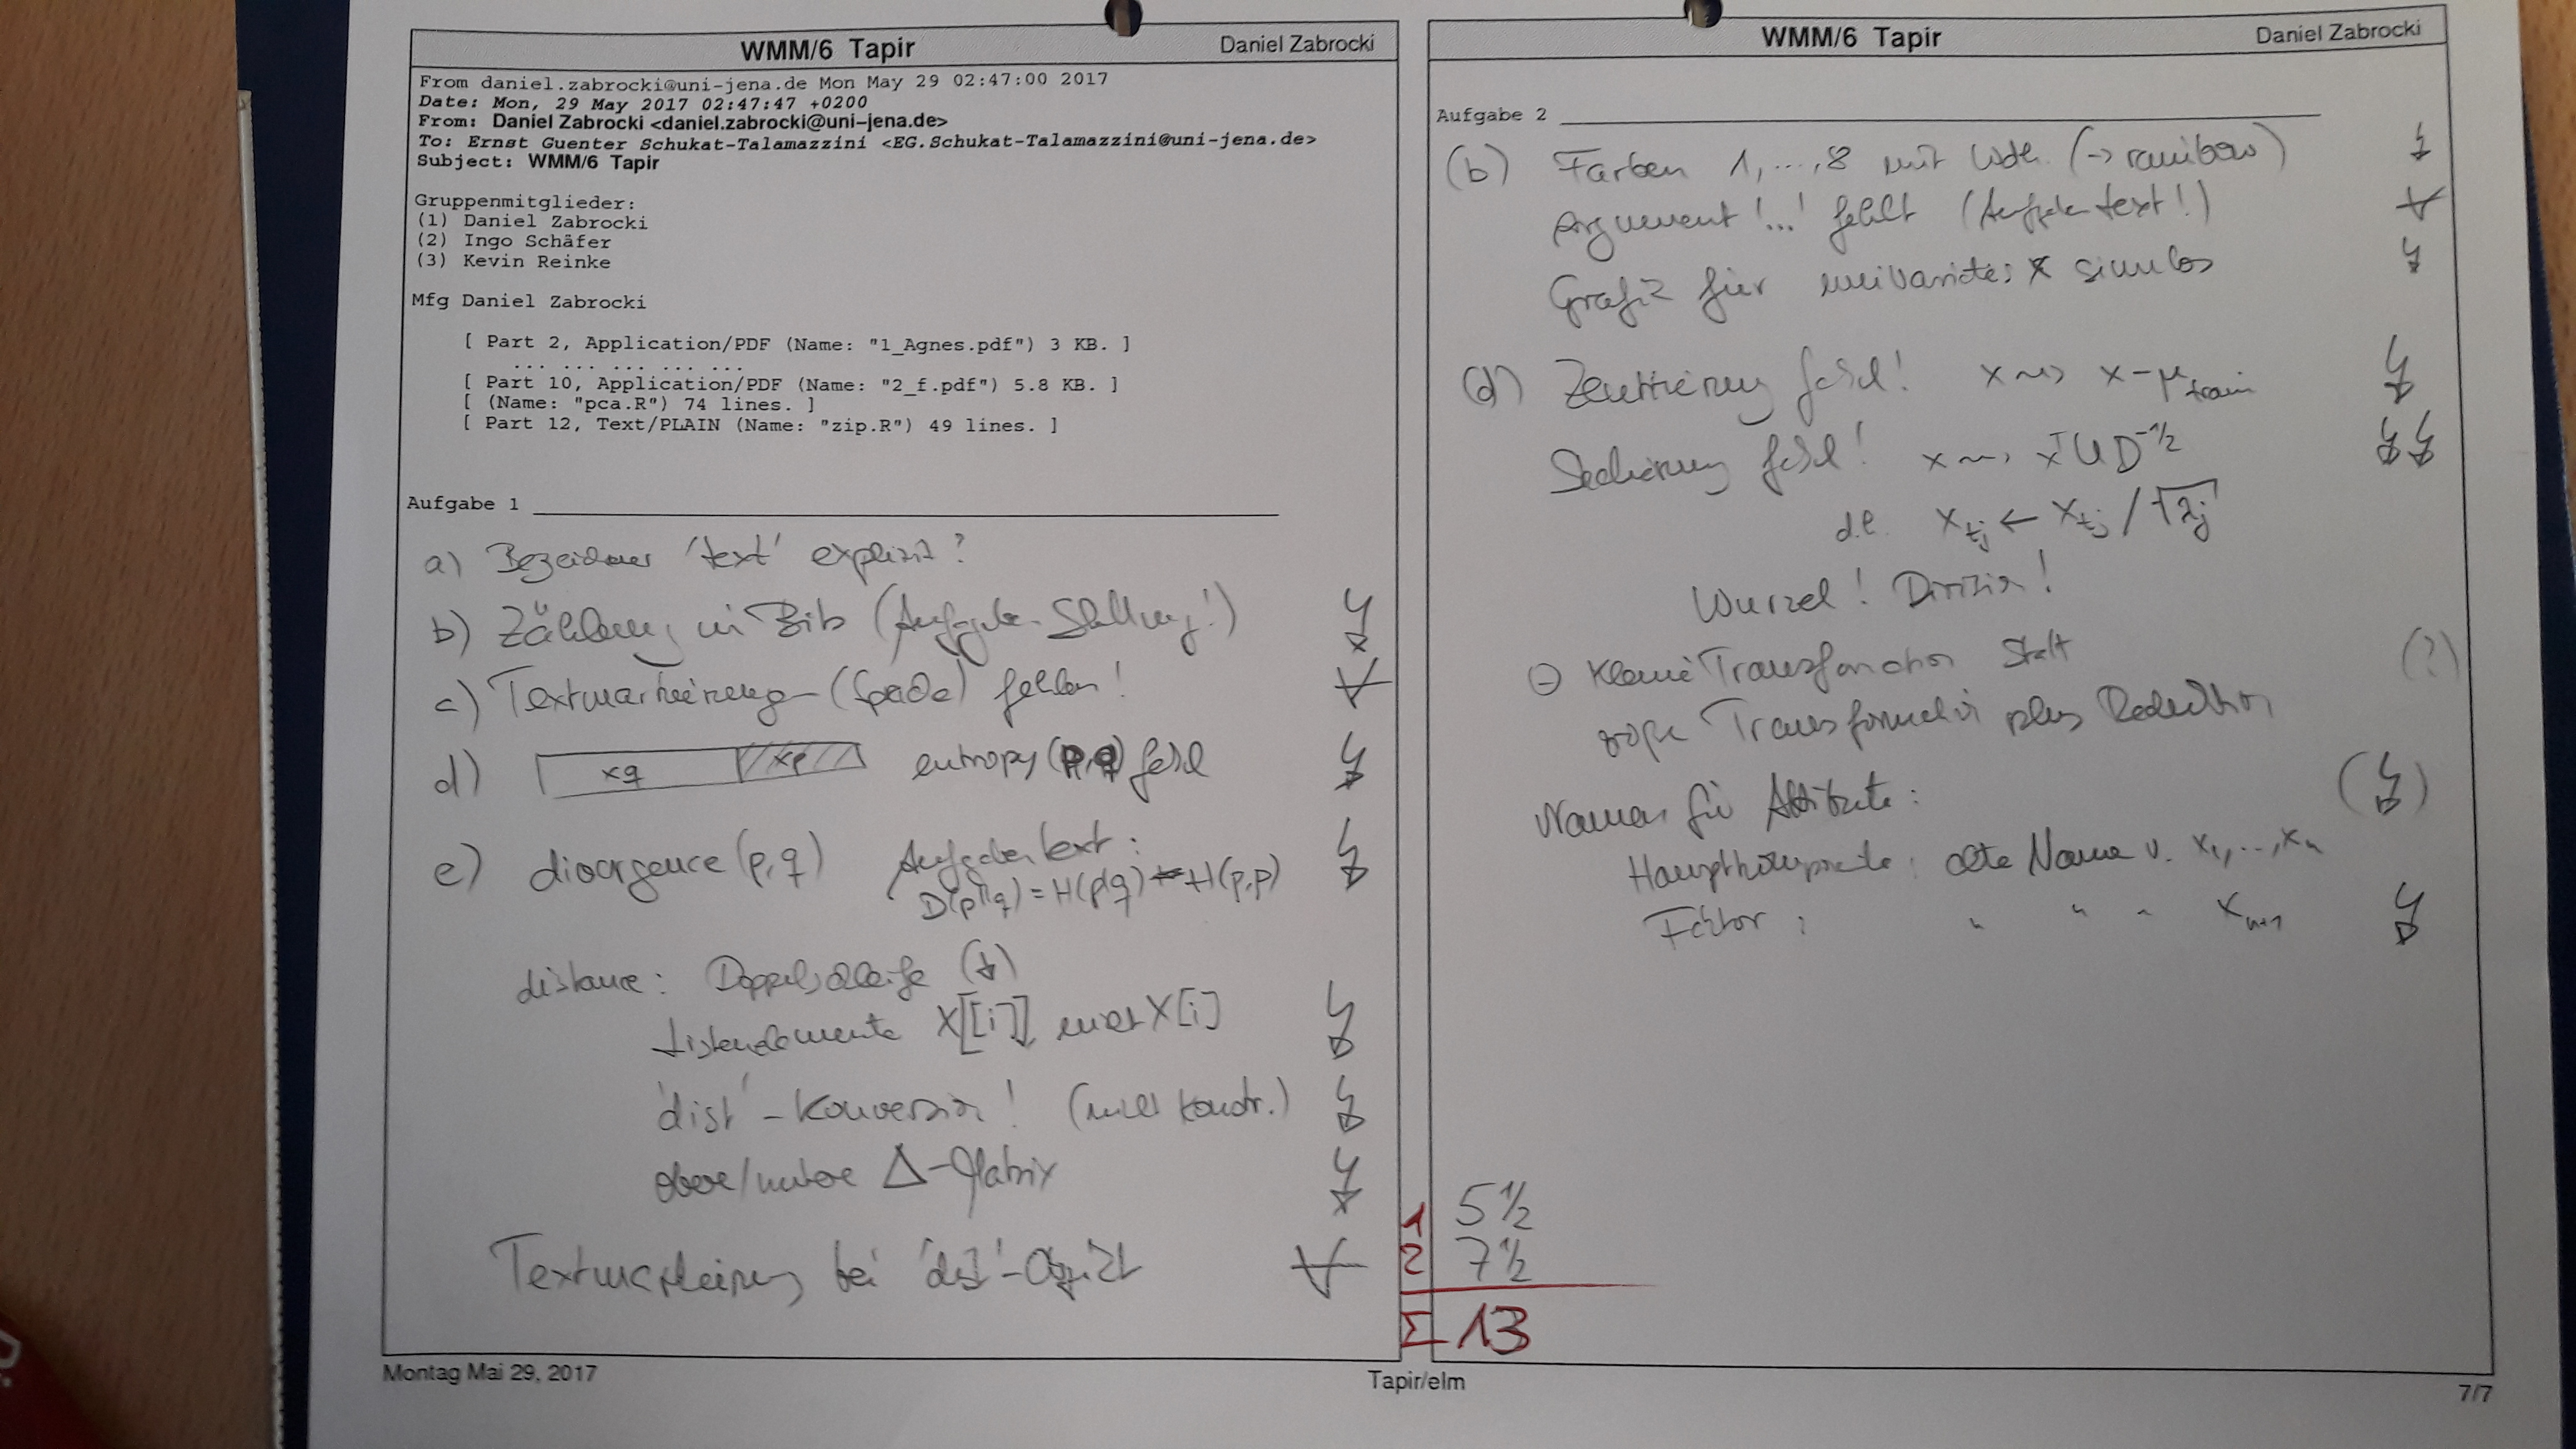 WMM/6 Tapir
Daniel Zabrocki
From daniel.zabrocki@uni-jena.de Mon May 29 02:47:00 2017
Date: Mon, 29 May 2017 02:47:47 +0200
From: Daniel Zabrocki <daniel.zabrocki@uni-jena.de>
To: Ernst Guenter Schukat-Talamazzini <EG.Schukat-Talamazzini@uni-jena.de>
Subject: WMM/6 Tapir
Gruppenmitglieder:
(1) Daniel Zabrocki
(2) Ingo Schäfer
(3) Kevin Reinke
Mfg Daniel Zabrocki
[ Part 2, Application/PDF (Name: "1_Agnes.pdf") 3 KB. ]
... ... ... ... ...
[ Part 10, Application/PDF (Name: "2_f.pdf") 5.8 KB. ]
[ (Name: "pca.R") 74 lines. ]
[ Part 12, Text/PLAIN (Name: "zip.R") 49 lines. ]
Aufgabe 1
a) Bezeichner 'text' explizit?
b) Zählung in Bits (Aufgabenstellung!)
c) Textmarkierung (Spade) fehlen!
d) xq xp entropy(p,q) fehl
e) divergence(p,q) Aufgabentext:
D(p||q) = H(p,q) - H(p,p)
distance: Doppelschleife (!)
Listenelemente X[[i]], nicht X[i]
'dist'-Konversion! (nur konstr.)
obere/untere Δ-Matrix
bei 'dist'-Objekt
Montag Mai 29, 2017
Tapir/elm
WMM/6 Tapir
Daniel Zabrocki
Aufgabe 2
(b) Farben 1,...,8 mit Wdh. (→ rainbow)
Argument '...' fehlt (Aufgabentext!)
Grafik für univariates x sinnlos
(d) Zentrierung fehlt! x ⇝ x - μ train
Skalierung fehlt! x ⇝ xᵀUD^-1/2
d.h. x_tj ← x_tj / √λj
Wurzel! Division!
⊖ kleine Transformation statt
große Transformation plus Reduktion (?)
Namen für Attribute:
Hauptkomponente: alte Name v. x1,..,xn
Faktor: " " " " xn+1
1 5 ½
2 7 ½
Σ 13
7/7